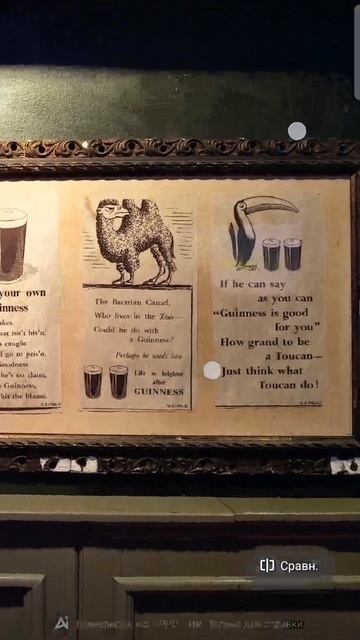 your own
inness
The Bactrian Camel,
Who lives in the Zoo—
Could he do with
a Guinness?
Perhaps he needs two
Life is brighter
after
GUINNESS
If he can say
as you can
"Guinness is good
for you"
How grand to be
a Toucan—
Just think what
Toucan do!
caught
d go to pris'n.
Goodness
he's no claim,
Guinness,
the blame.
Сравн.